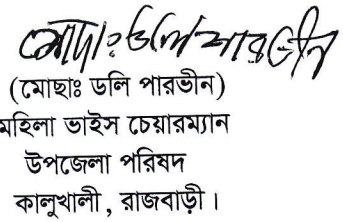 মোছাঃ ডলি পারভীন
(মোছাঃ ডলি পারভীন)
মহিলা ভাইস চেয়ারম্যান
উপজেলা পরিষদ
কালুখালী , রাজবাড়ী ।